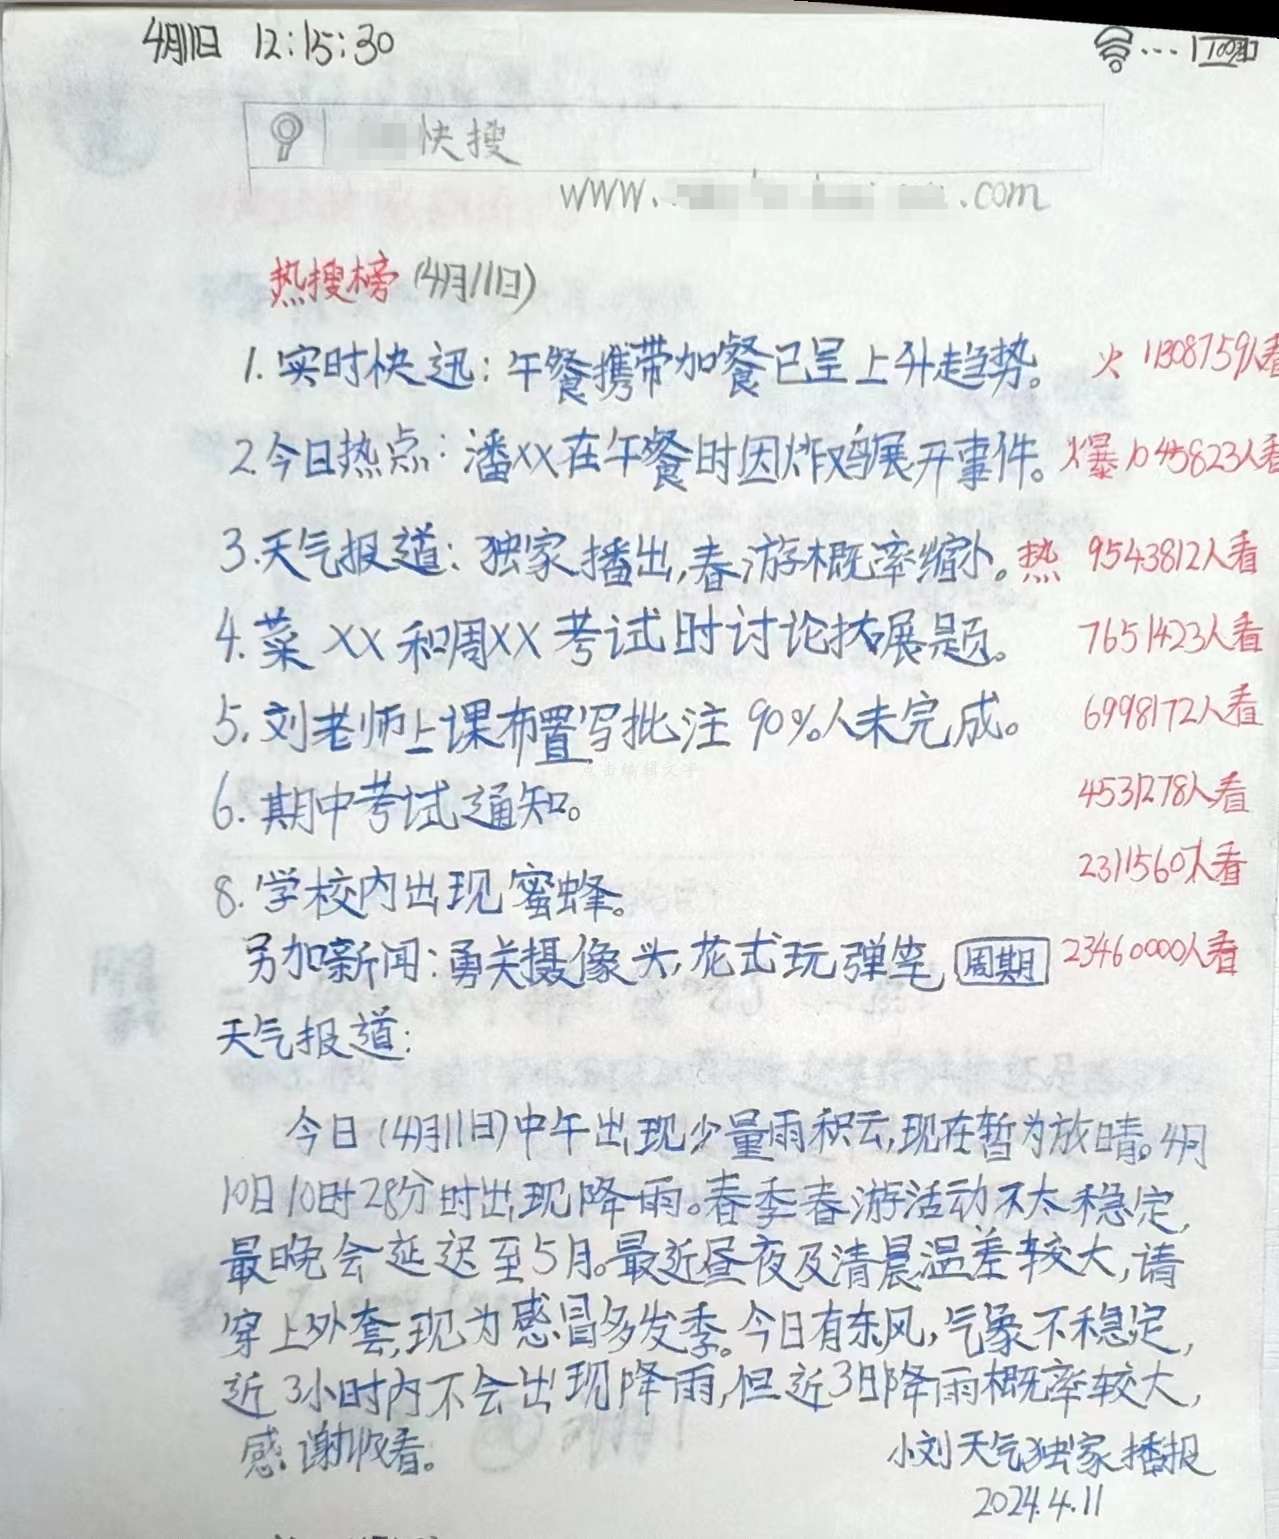 4月11日 12:15:30 100%
快搜
www. .com
热搜榜 (4月11日)
1.实时快迅:午餐携带加餐已呈上升趋势。 火 11308759人看
2.今日热点:潘XX在午餐时因炸鸡展开事件。 爆 1045823人看
3.天气报道:独家播出,春游概率缩小。 热 9543812人看
4.菜XX和周XX考试时讨论拓展题。 7651423人看
5.刘老师上课布置写批注90%人未完成。 6998172人看
点击编辑文字
6.期中考试通知。 4531278人看
8.学校内出现蜜蜂。 2311560人看
另加新闻:勇关摄像头,花式玩弹笔 周期 23460000人看
天气报道:
今日(4月11日)中午出现少量雨积云,现在暂为放晴。4月
10日10时28分时出现降雨。春季春游活动不太稳定,
最晚会延迟至5月。最近昼夜及清晨温差较大,请
穿上外套,现为感冒多发季。今日有东风,气象不稳定,
近3小时内不会出现降雨,但近3日降雨概率较大,
感谢收看。 小刘天气独家播报
2024.4.11